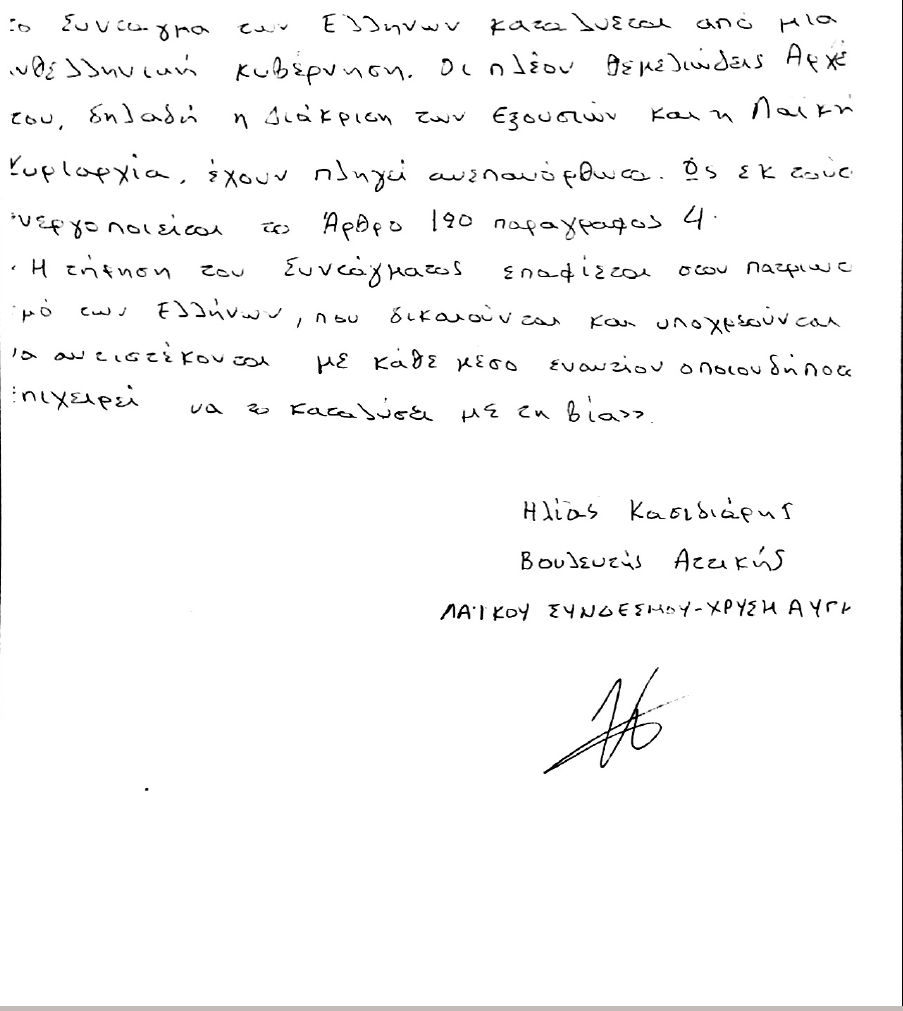 το Σύνταγμα των Ελλήνων καταλύεται από μια
νθελληνική κυβέρνηση. Οι πλέον θεμελιώδεις Αρχέ
του, δηλαδή η Διάκριση των Εξουσιών και η Λαϊκή
Κυριαρχία, έχουν πληγεί ανεπανόρθωτα. Ως εκ τούτο
νεργοποιείται το Άρθρο 120 παραγραφος 4.
Η τήρηση του Συντάγματος επαφίεται στον πατριωτ
μό των Ελλήνων, που δικαιούνται και υποχρεούνται
να αντιστέκονται με κάθε μέσο εναντίον οποιουδήποτε
επιχειρεί να το καταλύσει με τη βία».
Ηλίας Κασιδιάρης
Βουλευτής Αττικής
ΛΑΪΚΟΥ ΣΥΝΔΕΣΜΟΥ-ΧΡΥΣΗ ΑΥΓΗ